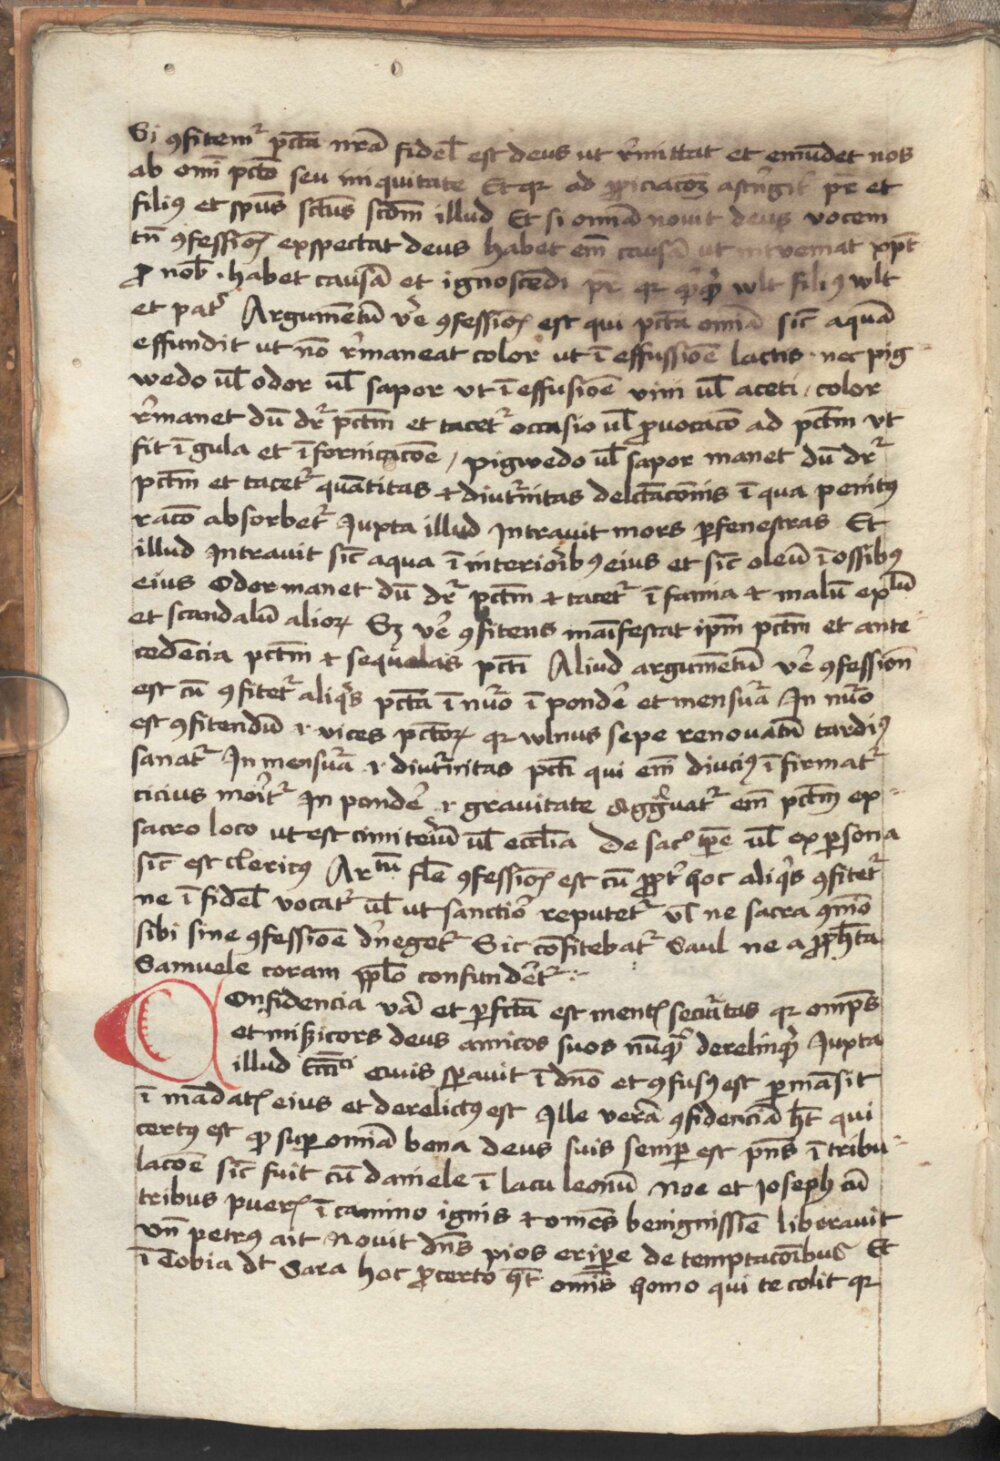 Si ꝯfitemꝰ pctā nrā fidel est deus ut rͥmittat et emūdet nos
ab omi pcto seu iniquitate Et qꝛ ad ꝓpiciacōꝫ astrīgit pr̄ et
filiꝰ et spūs sctūs scdm illud Et si omnia novit deus vocem
tn̄ ꝯfessiōꝫ exspectat deus habet em̄ causā ut intveniat xp̄c
ꝓ nob · habet causā et ignoscēdi pr̄ qꝛ wlt filiꝰ wlt
et patͬ Argumētū vͤe ꝯfessiōꝫ est qui pctā omīa sic̄ aquā
effundit ut nō rͥmaneat color ut ī effussiōe lactis · nec pig
wedo ul̄ odor ul̄ sapor vt ī effusiōe vini ul̄ aceti / color
rͥmanet dū drͬ pctm̄ et tacetͬ occasio ul̄ ꝓvocacō ad pctm̄ vt
fit ī gula et ī fornicacōe / pigwedo ul̄ sapor manet dū drͬ
pctm̄ et tacetͬ quātitas ⁊ diutͥnitas delctācōnis ī qua penitꝰ
racō absorbetͬ Juxta illud Intravit mors ꝑ fenestras Et
illud Intravit sic̄ aqua ī interioͥibꝰ eius et sic̄ oleū ī ossibꝰ
eius Odor manet dū drͬ pctm̄ ⁊ tacetͬ ī famia ⁊ malū explū
et scandalū alioꝝ Sꝫ vͤe ꝯfitens maīfestat ipm̄ pctm̄ et ante
cedēcia pctm̄ ⁊ sequelas pcti Aliud argumētū vͤe ꝯfessiōn
est cū ꝯfitetͬ aliqͥs pctā ī nuͦo ī pondͤe et mensurͣ In nuͦo
est ꝯfitendū ⁊ vices pctōꝝ qꝛ wlnus sepe renovatū tardiꝰ
sanatͬ In mensurͣ ⁊ diutͥnitas pcti qui em̄ diuciꝰ ī firmatͬ
cicius moritͬ In pondͤe ⁊ gravitate aggͣvatͬ em̄ pctm̄ ex
sacro loco ut est cimiteriū ul̄ ecclīa De sacͦ tpe ul̄ ex ꝑsona
sic̄ est clericꝰ Artū fl̄e ꝯfessiōꝫ est cū ꝓptͬ hoc aliqͥs ꝯfitetͬ
ne ī fidel vocatͬ ul̄ ut sanctioͬ reputetͬ vl̄ ne sacra ꝯmīo
sibi sine ꝯfessiōe dͤnegetͬ Sic cōfitebatͬ Saul ne a ꝓphēta
Samuele coram ppl̄o confundͤetͬ
Confidencia vā et ꝑfctā est mentꝭ secuͬitas qꝛ omp̄s
et misͥicors deus amicos suos nūqͣ derelinqͥ Juxta
illud Ecc̄ci Qvis spͤavit ī dn̄o et ꝯfusꝰ est ꝑmāsit
ī mādatꝭ eius et derelictꝰ est Ille verā ꝯfidēciā hꝫt qui
certꝰ est ꝙ suꝑ omīa bona deus suis semꝑ est pn̄s ī tribu
lacōe sic̄ fuit cū daniele ī lacu leonū Noe et Joseph cū
tribus puerꝭ ī camino ignis ⁊ omēs benignissīe liberavit
Vn̄ petrꝰ ait Novit dn̄s pios eriꝑe de temptacōibus Et
ī Tobia dt Sara hoc ꝓ certo hꝫt omis homo qui te colit qꝛ